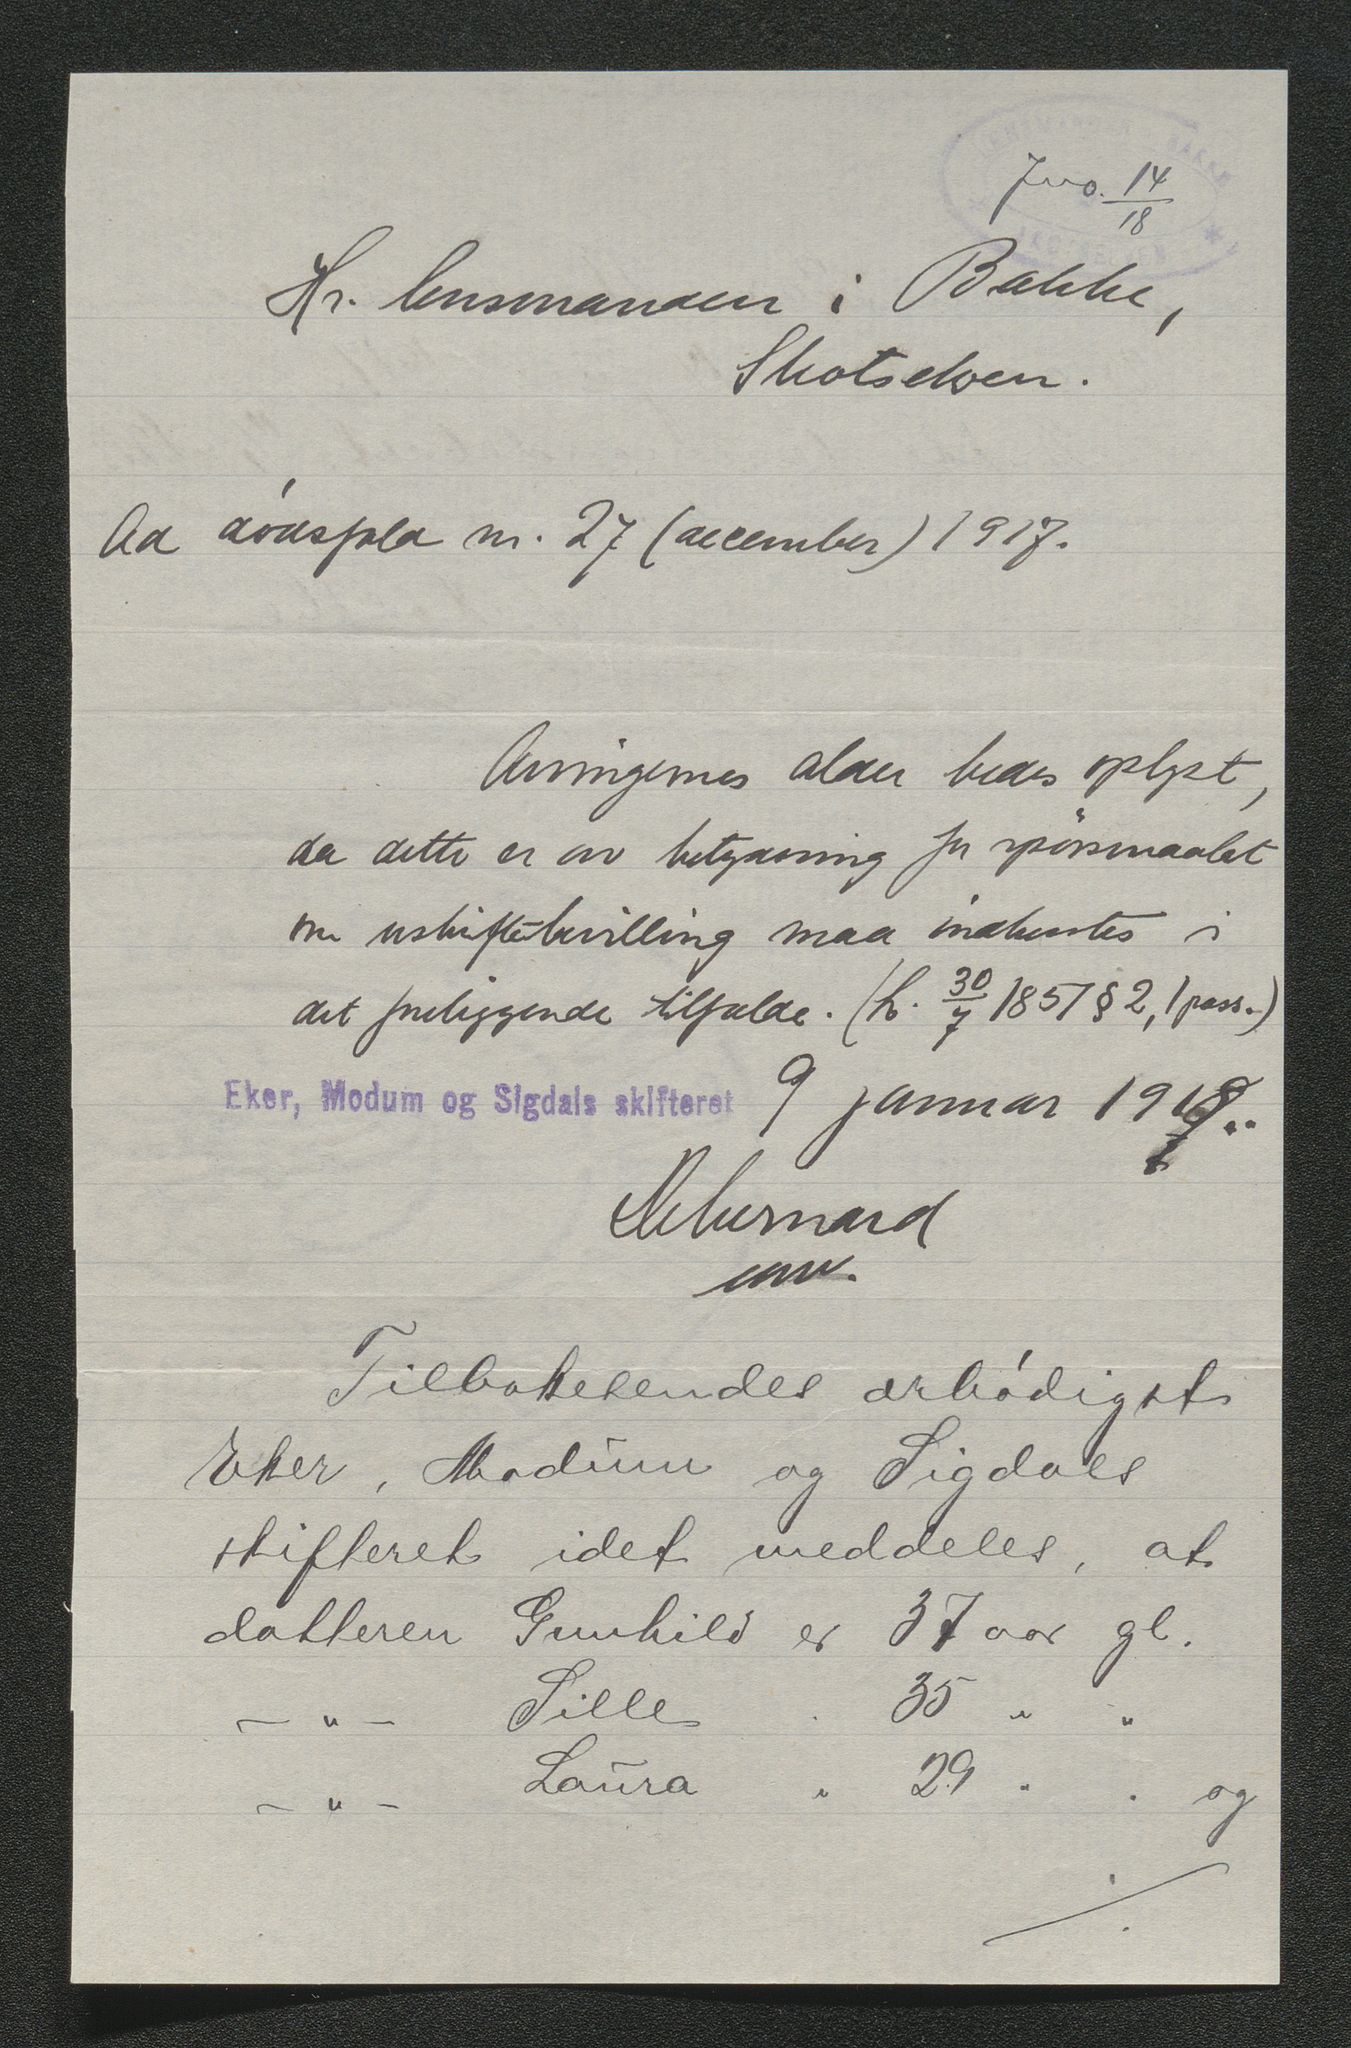 Jno. 14/18
Hr. lensmanden i Bakke,
Skotselven.
Ad dódsfald nr. 27 (december) 1917.
Arvingernes alder bedes oplyst,
da dette er av betydning for spörsmaalet
om uskiftebevilling maa indhentes i
det foreliggende tilfælde. (L. 30/7 1851 § 2, 1 pass.)
Eker, Modum og Sigdals skifteret 9 januar 1918.
const.
Tilbakesendes ærbódigst
Eker, Modum og Sigdals
skifteret idet meddeles, at
datteren Gunhild er 37 aar gl.
— " — Sille . 35 " "
— " — Laura " 29 " . og
./.